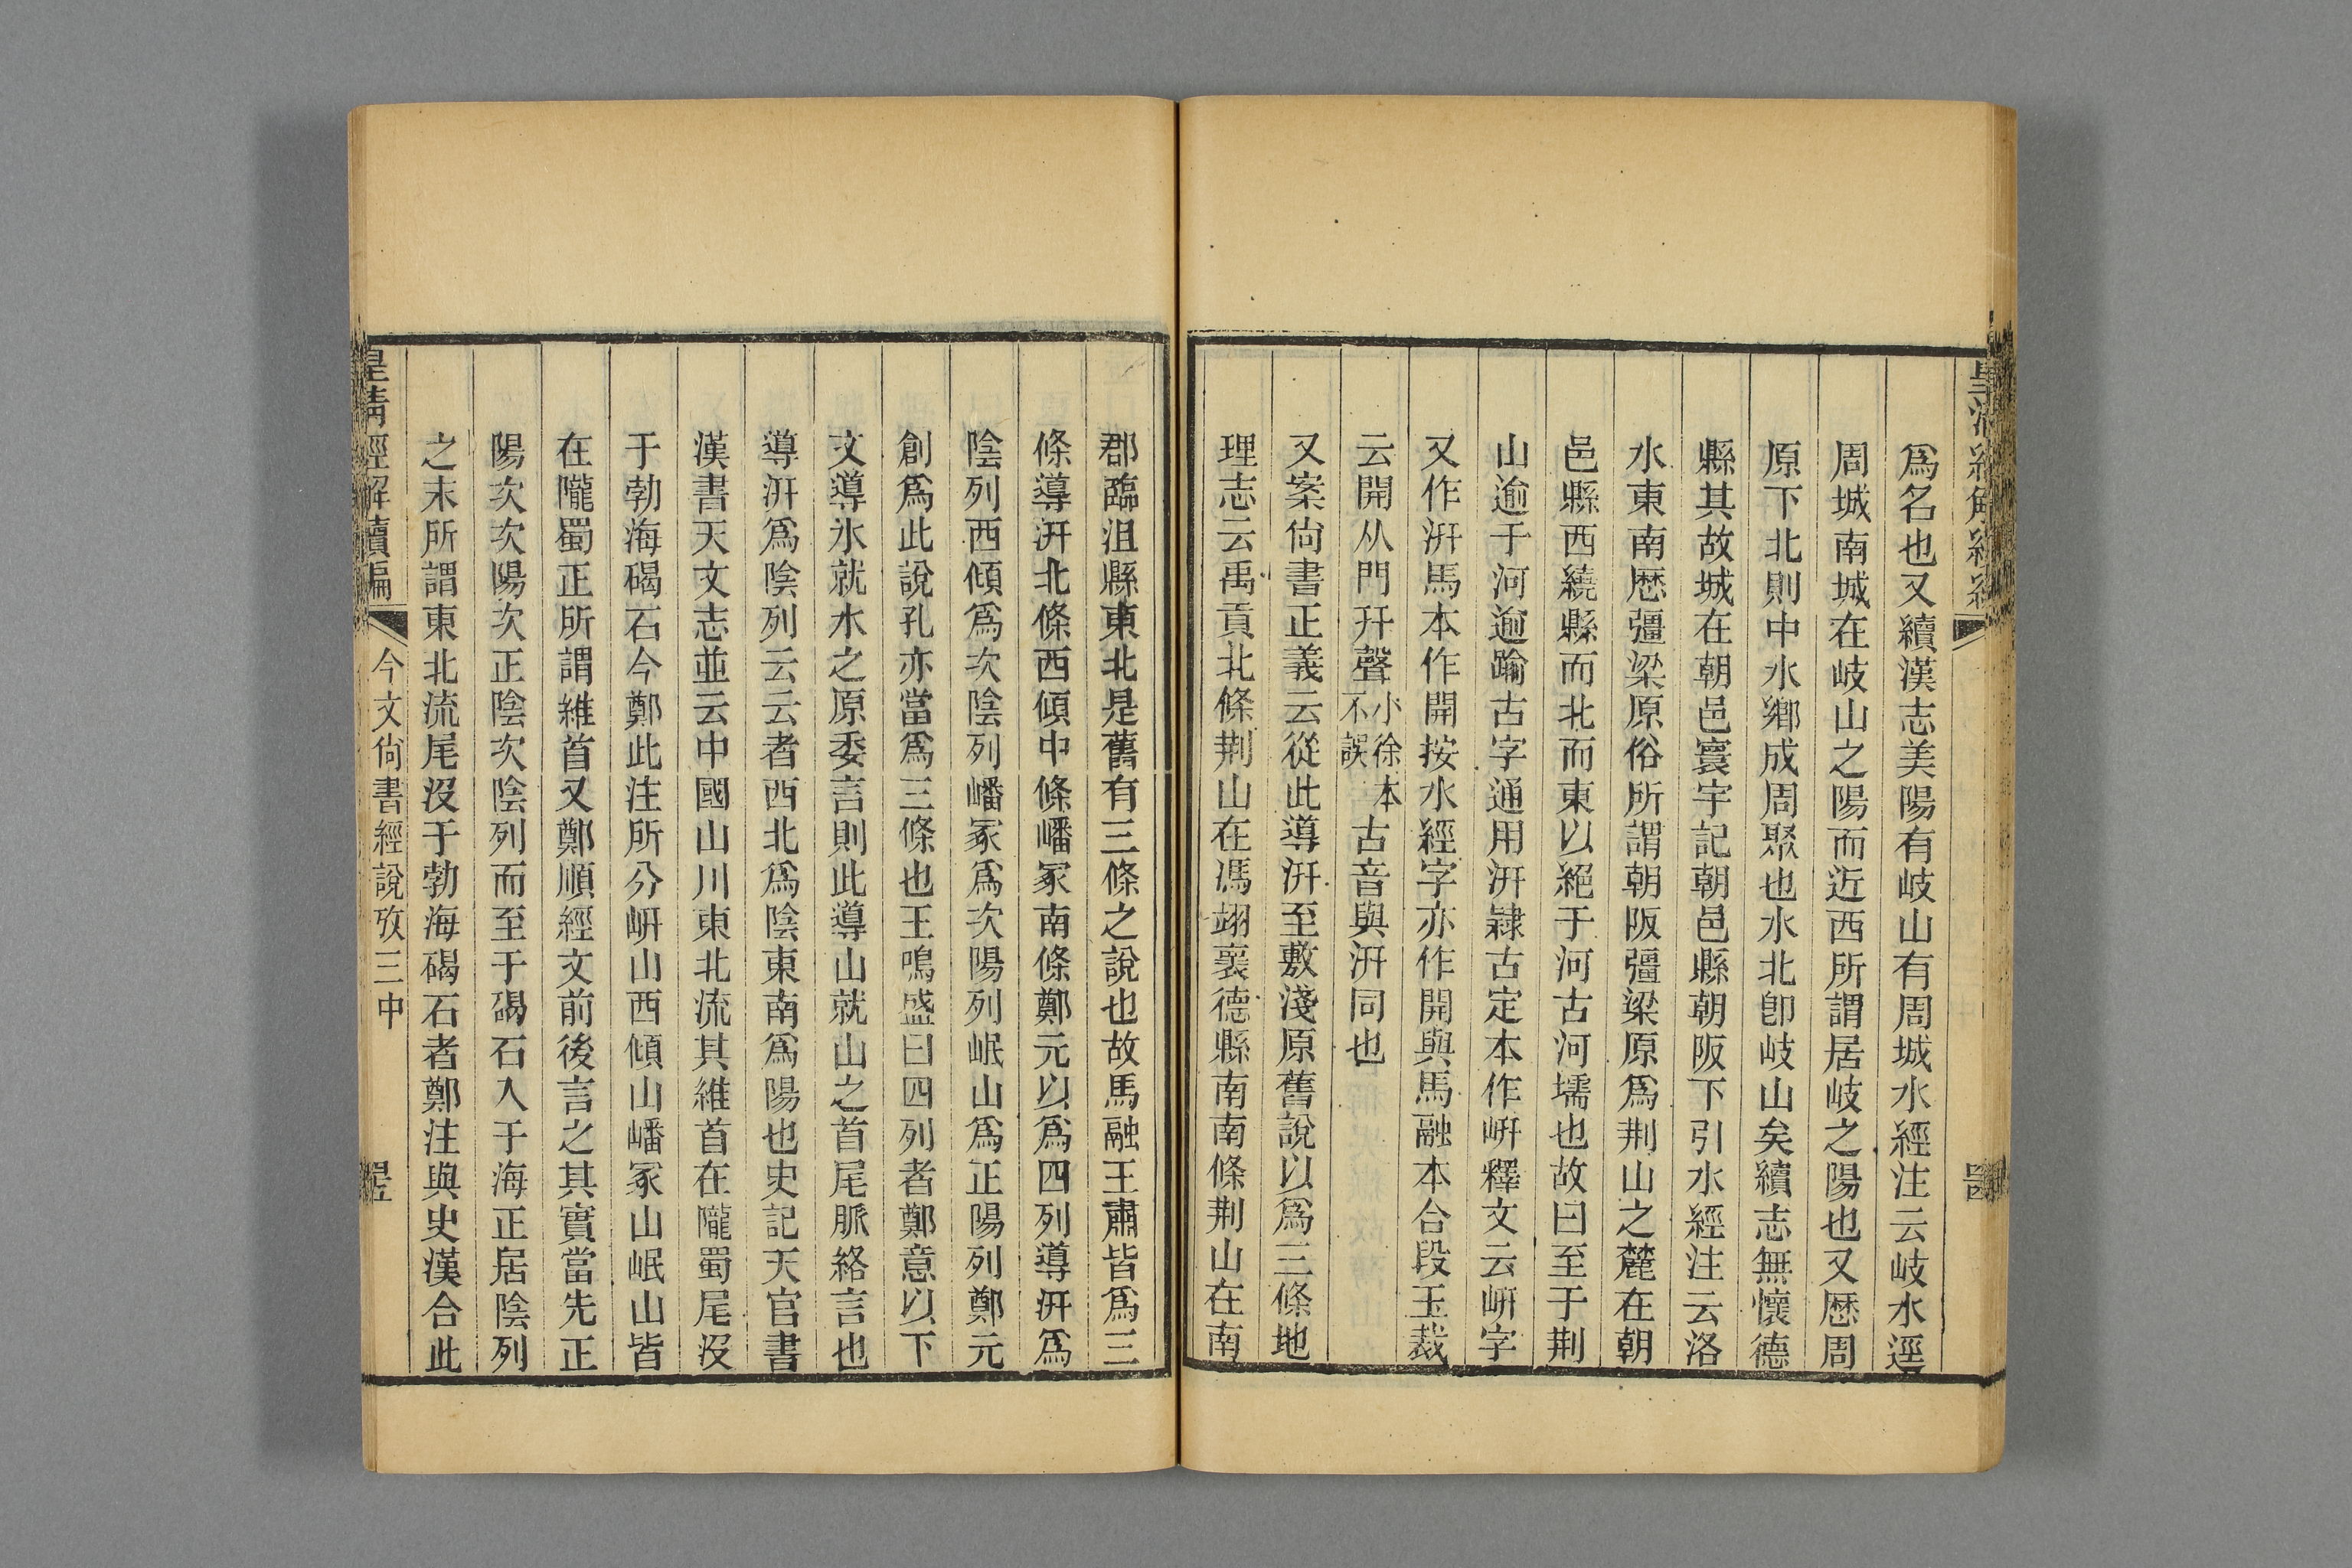 爲名也又續漢志美陽有岐山有周城水經注云岐水逕
周城南城在岐山之陽而近西所謂居岐之陽也又歷周
原下北則中水鄉成周聚也水北卽岐山矣續志無懷德
縣其故城在朝邑寰宇記朝邑縣朝阪下引水經注云洛
水東南歷彊梁原俗所謂朝阪彊梁原爲荆山之麓在朝
邑縣西繞縣而北而東以絕于河古河壖也故曰至于荆
山逾于河逾踰古字通用汧隸古定本作岍釋文云岍字
又作汧馬本作開按水經字亦作開與馬融本合段玉裁
云開从門幵聲小徐本不誤古音與汧同也
又案尙書正義云從此導汧至敷淺原舊說以爲三條地
理志云禹貢北條荆山在馮翊襄德縣南南條荆山在南
郡臨沮縣東北是舊有三條之說也故馬融王肅皆爲三
條導汧北條西傾中條嶓冢南條鄭元以爲四列導汧爲
陰列西傾爲次陰列嶓冢爲次陽列岷山爲正陽列鄭元
創爲此說孔亦當爲三條也王鳴盛曰四列者鄭意以下
文導水就水之原委言則此導山就山之首尾脈絡言也
導汧爲陰列云云者西北爲陰東南爲陽也史記天官書
漢書天文志並云中國山川東北流其維首在隴蜀尾沒
于勃海碣石今鄭此注所分岍山西傾山嶓冢山岷山皆
在隴蜀正所謂維首又鄭順經文前後言之其實當先正
陽次次陽次正陰次陰列而至于碣石入于海正居陰列
之末所謂東北流尾沒于勃海碣石者鄭注與史漢合此
皇清經解續編
今文尙書經說攷三中